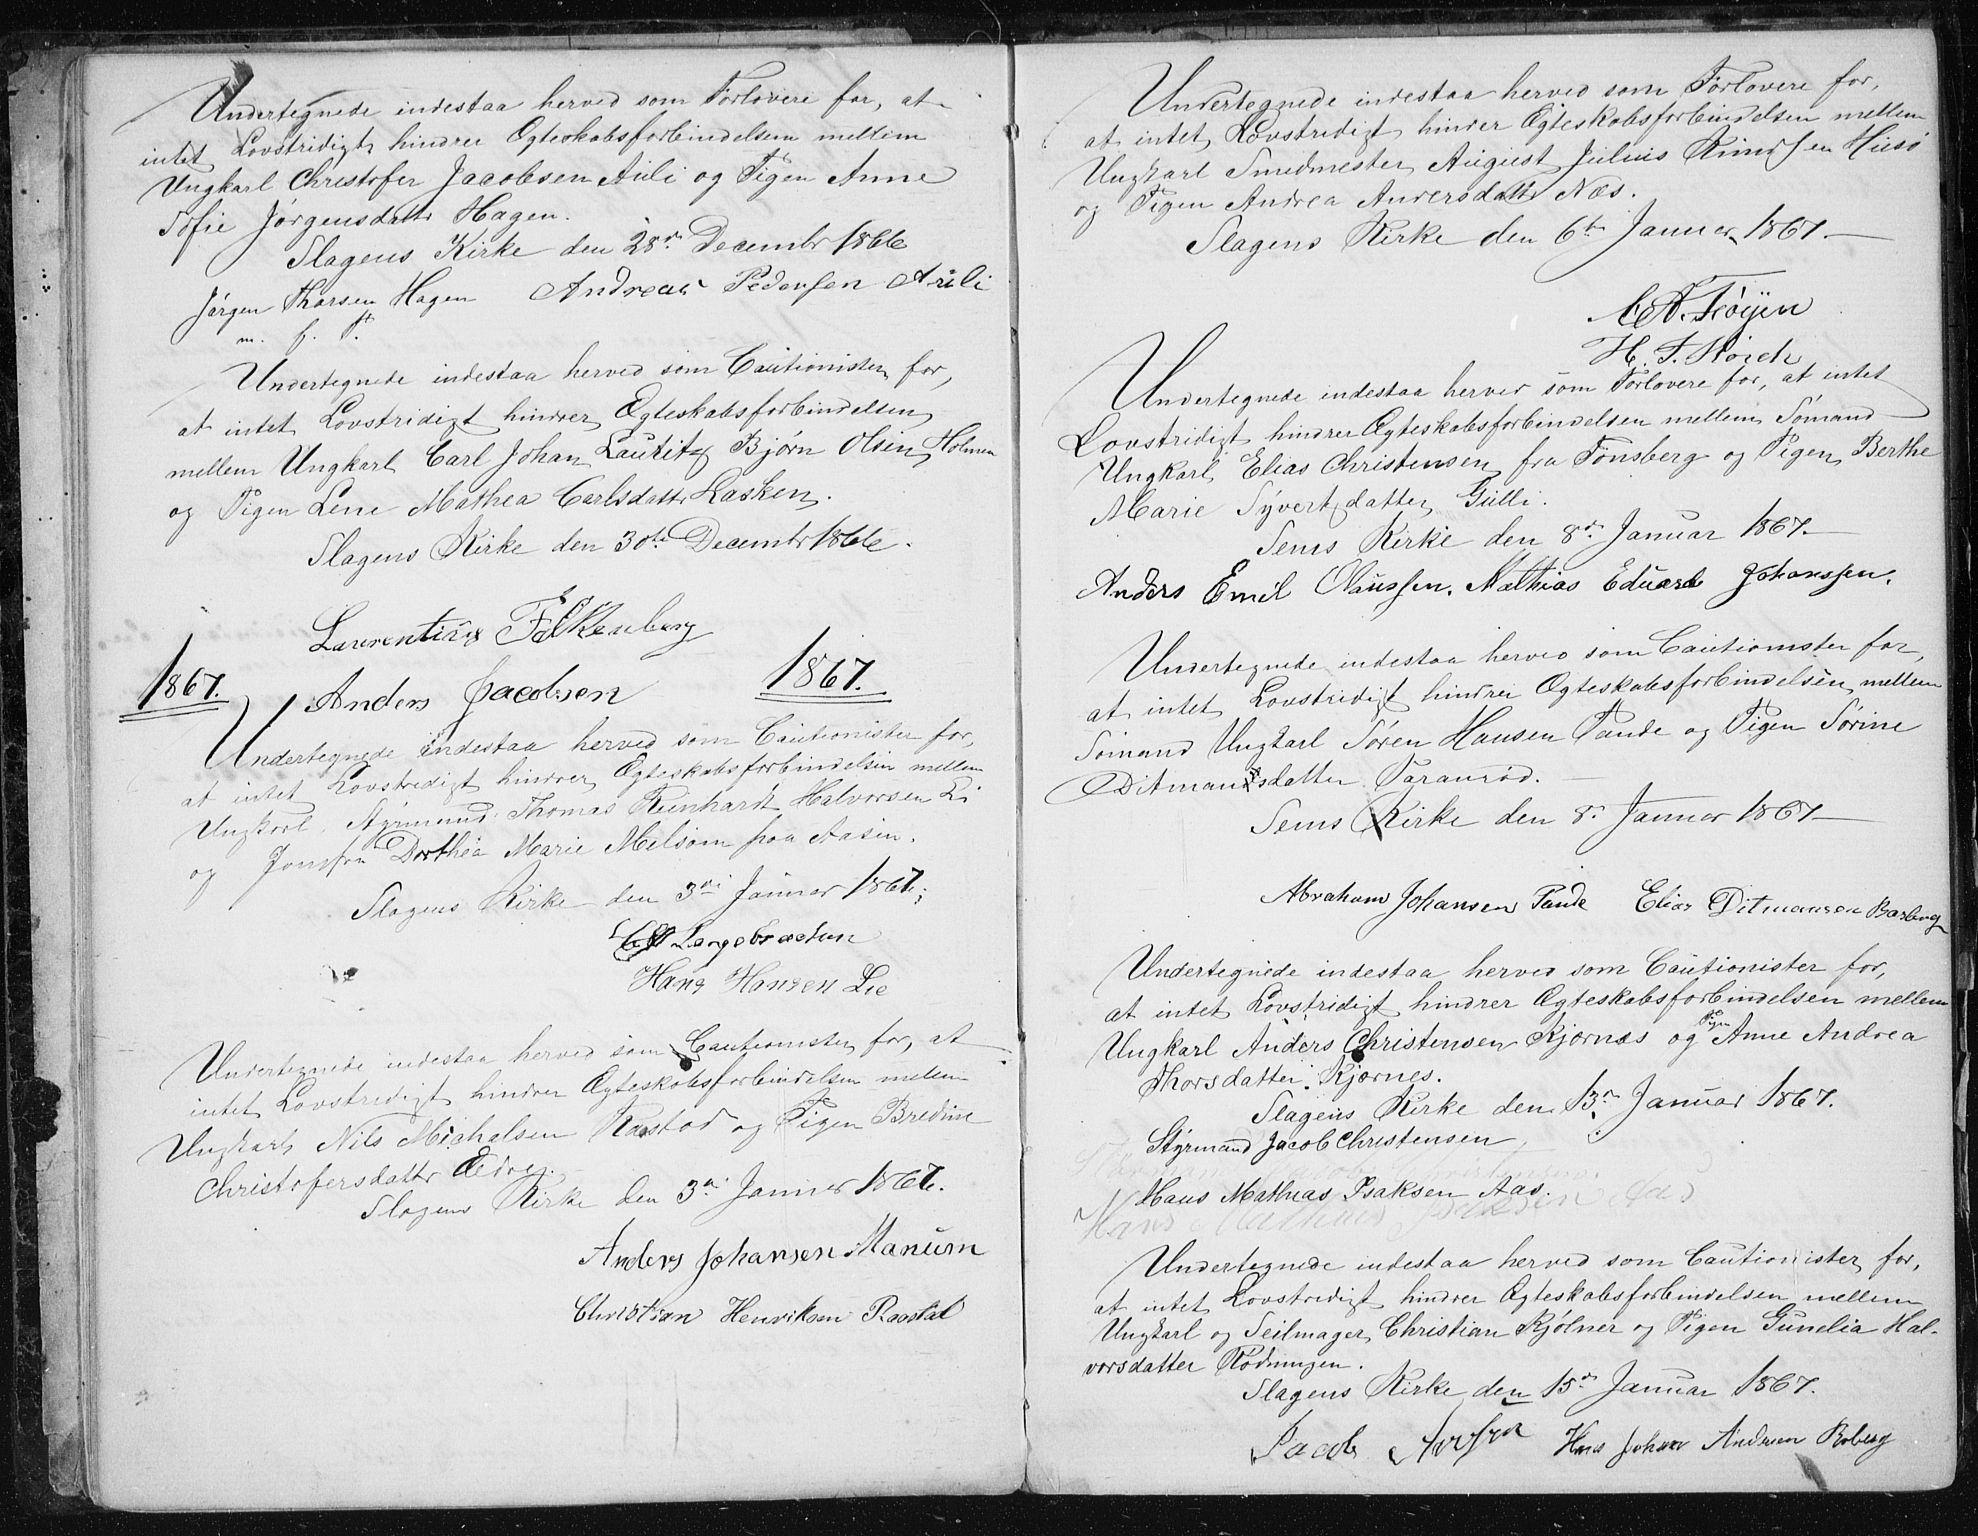 Undertegnede indestaa herved som Forlovere for, at
intet Lovstridigt hindrer Ægteskabsforbindelsen mellem
Ungkarl Christofer Jacobsen Auli og Pigen Anne
Sofie Jørgensdattr Hagen.
Slagens Kirke den 28de Decembr 1866
Jørgen Thorsen Hagen Andreas Pedersen Auli
m. f. P.
Undertegnede indestaa herved som Cautionister for,
at intet Lovstridigt hindrer Ægteskabsforbindelsen
mellem Ungkarl Carl Johan Lauritz Bjørn Olsen Holmen
og Pigen Lene Mathea Carlsdattr Lasken.
Slagens Kirke den 30te Decembr 1866.
Laurentius Falkenberg
1867. Anders Jacobsen 1867.
Undertegnede indestaa herved som Cautionister for,
at intet Lovstredigt hindrer Ægteskabsforbindelsen mellem
Ungkarl Styrmand Thomas Reinhardt Halvorsen Li
og Jomfru Dorthea Marie Melsom paa Aasen.
Slagens Kirke den 3die Januar 1867.
Langebraaten
Hans Hansen Lie
Undertegnede indestaa herved som Cautionister for, at
intet Lovstredigt hindrer Ægteskabsforbindelsen mellem
Ungkarl Nils Michelsen Rastad og Pigen Bredine
Christofersdattr Ædre.
Slagens Kirke den 3die Januar 1867.
Anders Johansen Manum
Christian Henriksen Raastad
Undertegnede indestaa herved som Forlovere for,
at intet Lovstredigt hinder Ægteskabsforbindelsen mellem
Ungkarl Smedmester August Julius Knudsen Husö
og Pigen Andrea Andersdattr Næs.
Slagens Kirke den 6te Januar 1867.
A. Føyen
H. F. Kørch
Undertegnede indestaa herved som Forlovere for, at intet
Lovstridigt hindrer Ægteskabsforbindelsen mellem Sømand
Ungkarl Elias Christensen fra Tønsberg og Pigen Berthe
Marie Syvertsdatter Gulli.
Sems Kirke den 8de Januar 1867.
Anders Emil Olaussen. Mathias Eduard Johanssen.
Undertegnede indestaa herved som Cautionister for,
at intet Lovstridigt hindrer Ægteskabsforbindelsen mellem
Sømand Ungkarl Søren Hansen Tande og Pigen Sørine
Ditmansdatter Taranrød.
Sems Kirke den 8de Januar 1867
Abraham Johansen Tande Elias Ditmansen Basberg
Undertegnede indestaa herved som Cautionister for,
at intet Lovstridigt hindrer Ægteskabsforbindelsen mellem
Ungkarl Anders Christensen Kjørnæs og Pigen Anne Andrea
Thorsdatter Kjørnes.
Slagens Kirke den 13de Januar 1867.
Styrmand Jacob Christensen
Hans Mathias Isaksen Aas.
Hans Mathias Isaksen Aas
Undertegnede indestaa herved som Cautionister for,
at intet Lovstredigt hindrer Ægteskabsforbindelsen mellem
Ungkarl og Seilmager Christian Kjølner og Pigen Gunelia Hal-
vorsdatter Rødningen.
Slagens Kirke den 15de Januar 1867.
Jacob Hans Johan Andersen Roberg